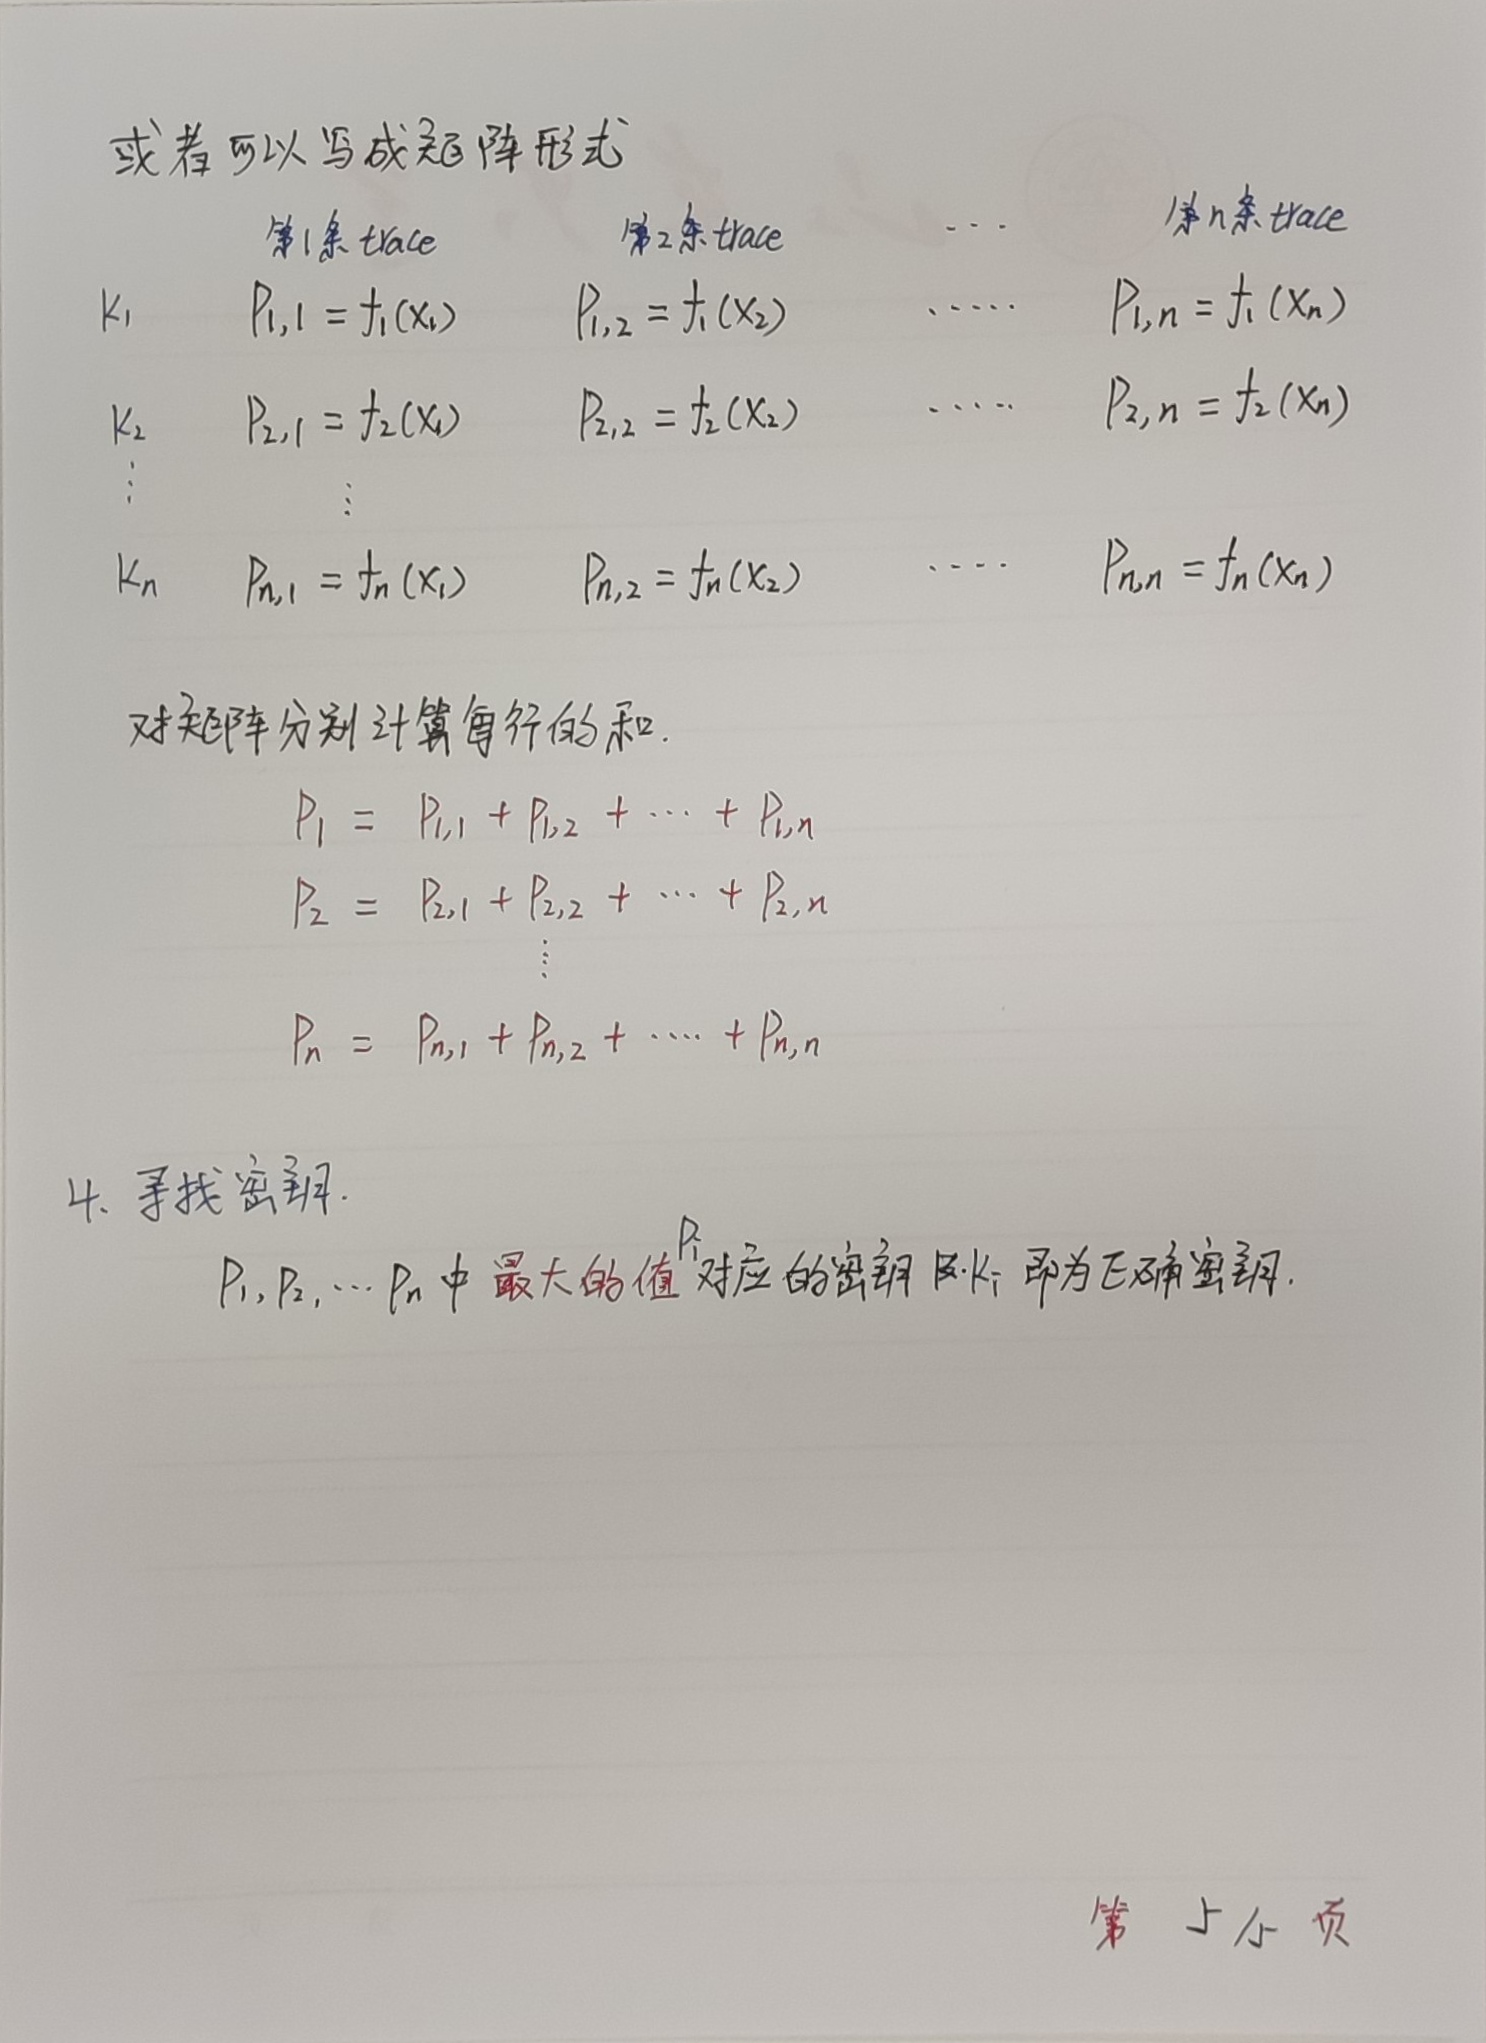 或者可以写成矩阵形式
第1条trace 第2条trace ... 第n条trace
K₁ P₁,₁ = f₁(x₁) P₁,₂ = f₁(x₂) ..... P₁,n = f₁(xn)
K₂ P₂,₁ = f₂(x₁) P₂,₂ = f₂(x₂) ..... P₂,n = f₂(xn)
⋮ ⋮
Kn Pn,₁ = fn(x₁) Pn,₂ = fn(x₂) .... Pn,n = fn(xn)
对矩阵分别计算每行的和.
P₁ = P₁,₁ + P₁,₂ + ... + P₁,n
P₂ = P₂,₁ + P₂,₂ + ... + P₂,n
⋮
Pn = Pn,₁ + Pn,₂ + .... + Pn,n
4、寻找密钥.
P₁, P₂, ... Pn 中最大的值Pᵢ对应的密钥 Kᵢ 即为正确密钥.
第 5/5 页